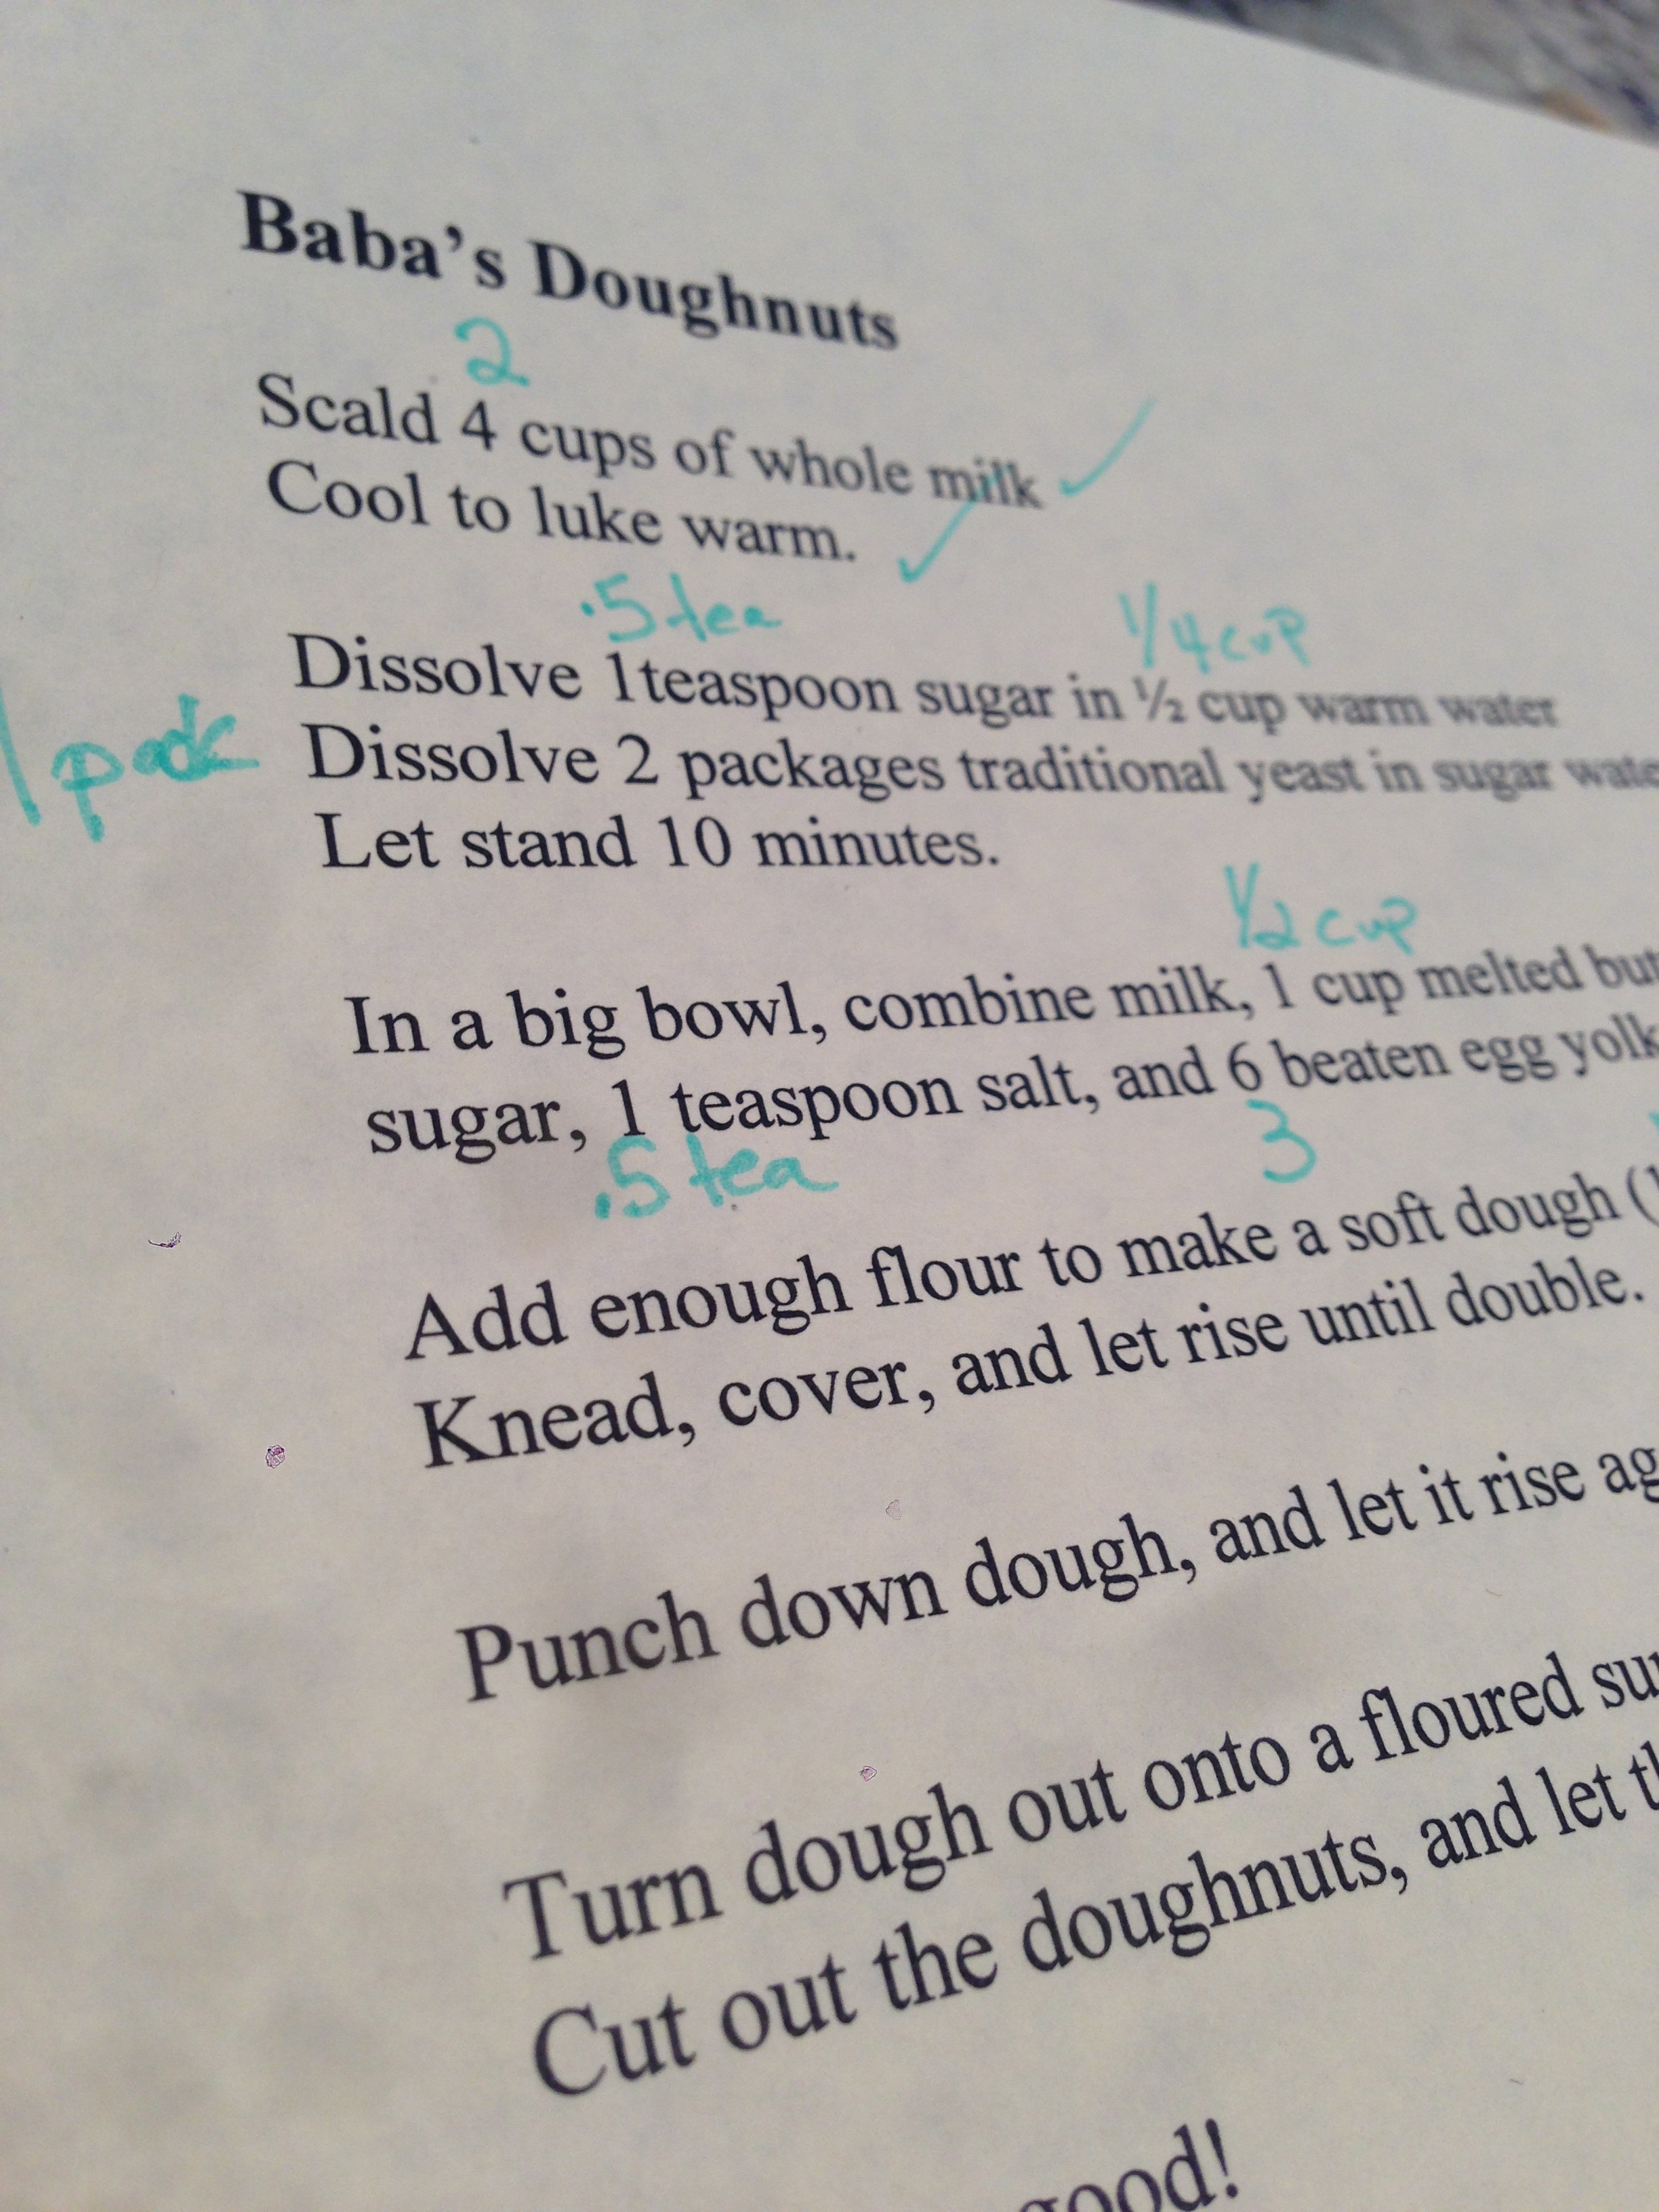 Baba's Doughnuts
2
Scald 4 cups of whole milk ✓
Cool to luke warm. ✓
.5 tea 1/4 cup
Dissolve 1teaspoon sugar in ½ cup warm water
1 pack
Dissolve 2 packages traditional yeast in sugar
Let stand 10 minutes.
1/2 cup
In a big bowl, combine milk, 1 cup melted
sugar, 1 teaspoon salt, and 6 beaten egg
.5 tea 3
Add enough flour to make a soft dough (
Knead, cover, and let rise until double.
Punch down dough, and let it rise
Turn dough out onto a floured
Cut out the doughnuts, and let
good!